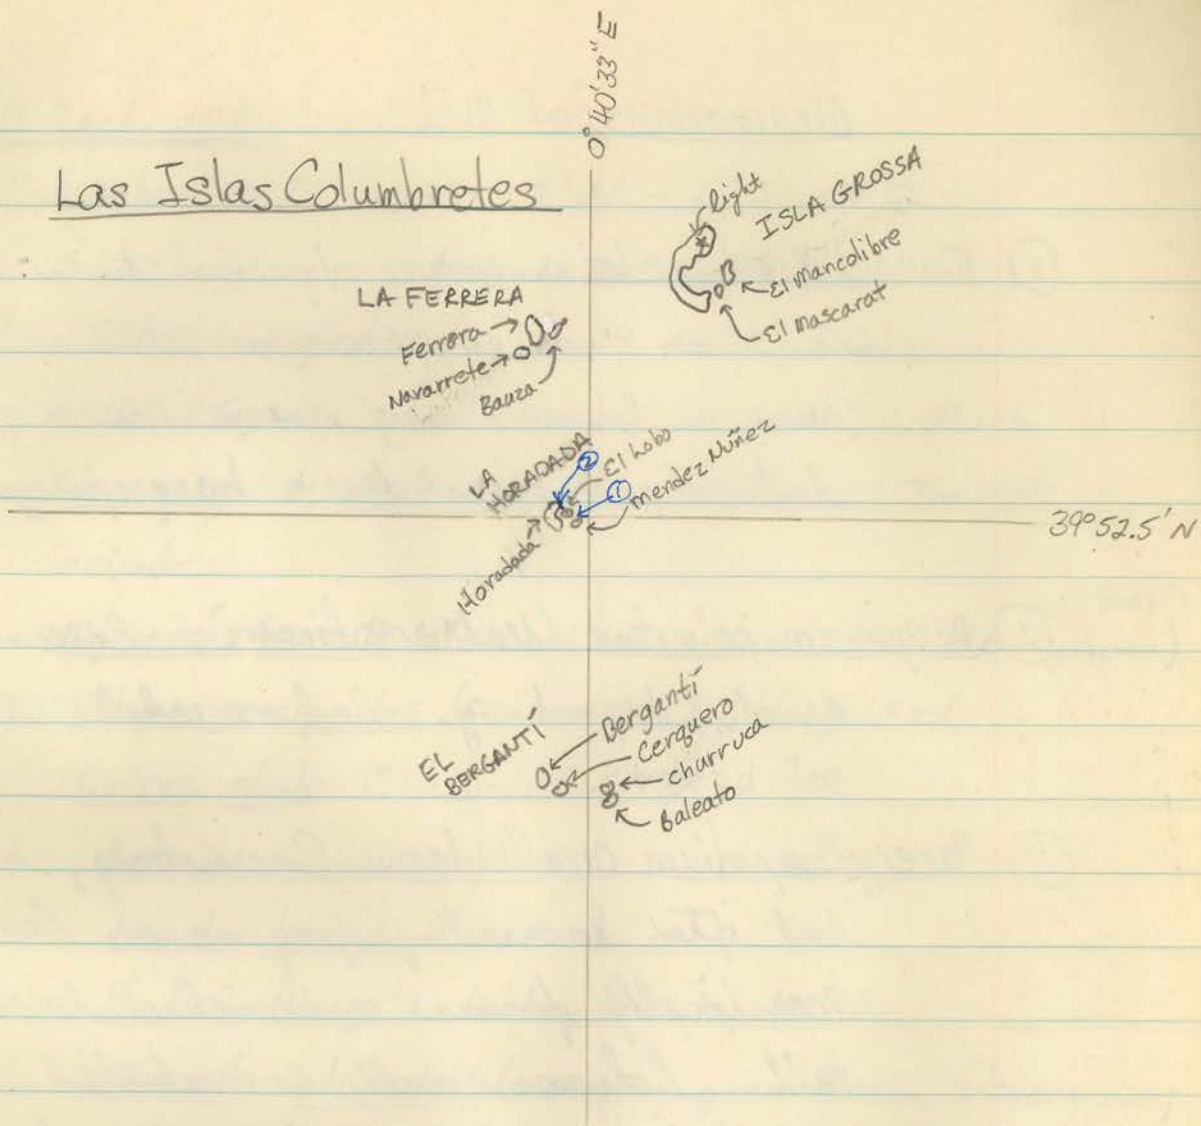 0°40'33" E
Las Islas Columbretes
light
ISLA GROSSA
El mancolibre
El mascarat
LA FERRERA
Ferrera
Navarrete
Bauza
LA
HORADADA
②
El Lobo
①
mendez Nuñez
Horadada
39°52.5' N
EL
BERGANTÍ
Bergantí
Cerquero
churruca
Baleato